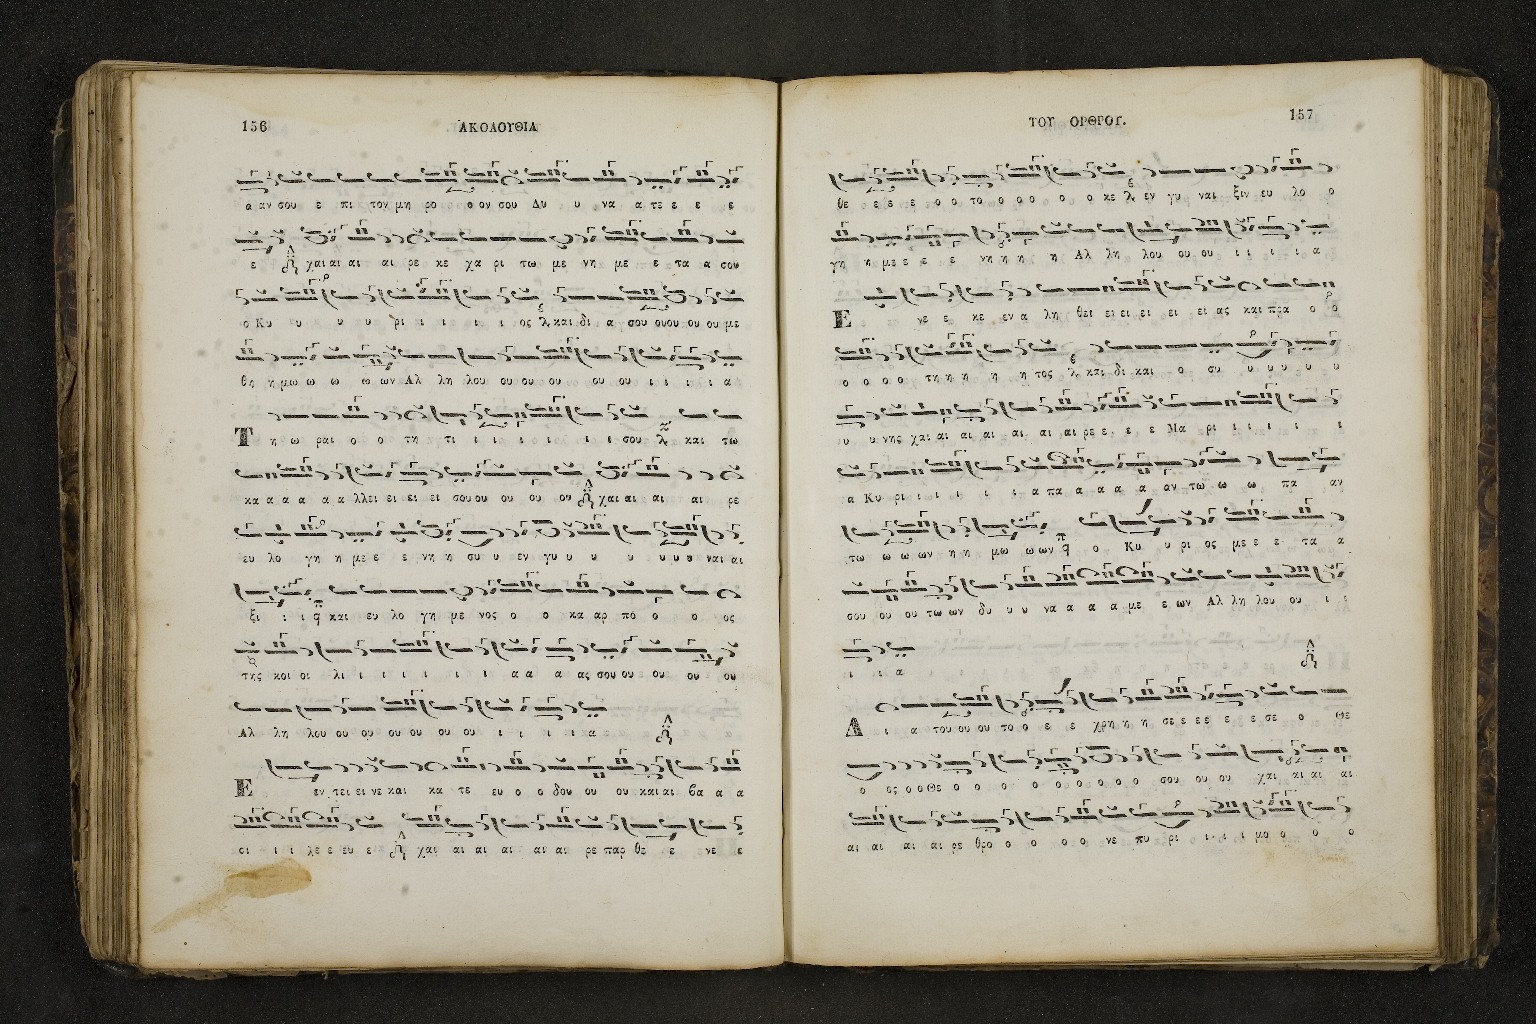 156
ΑΚΟΛΟΥΘΙΑ
α αν σου ε πι τον μη ρο ο ον σου Δυ υ να α τε ε ε ε
ε χαι αι αι αι ρε κε χα ρι τω με νη με ε τα α σου
ο Κυ υ υ υ ρι ι ι ι ι ος και δι α σου ου ου ου ου με
θη η μω ω ω ω ων Αλ λη λου ου ου ου ου ου ι ι ι ι α
Τ η ω ραι ο ο τη τι ι ι ι ι ι ι ι σου και τω
κα α α α α α λλει ει ει ει ει σου ου ου ου ου ου χαι αι αι αι ρε
ευ λο γη η με ε ε νη η συ υ εν γυ υ υ υ υ υ υ ναι αι
ξι ι ι και ευ λο γη με νος ο ο κα αρ πο ο ο ος
της κοι οι λι ι ι ι ι ι ι α α α ας σου ου ου ου ου
Αλ λη λου ου ου ου ου ου ου ι ι ι ι α
Ε εν τει ει νε και κα τε ευ ο ο δου ου ου και αι βα α α
σι ι ι λε ε ευ ε χαι αι αι αι αι αι ρε παρ θε ε νε ε
ΤΟΥ ΟΡΘΡΟΥ.
157
θε ε ε ε ο ο το ο ο ο ο ο κε εν γυ ναι ξιν ευ λο ο
γη η με ε ε ε νη η η η Αλ λη λου ου ου ι ι ι ι α
Ε νε ε κε εν α λη θει ει ει ει ει ει ας και πρα ο ο
ο ο ο ο τη η η η η της και δι και ο συ υ υ υ υ
υ υ νης χαι αι αι αι αι αι αι ρε ε ε ε Μα ρι ι ι ι ι ι
α Κυ ρι ι ι ι ι ι α πα α α α α αν τω ω ω πα αν
τω ω ω ων η η μω ω ων ο Κυ υ ρι ος με ε ε τα α
σου ου ου τω ων δυ υ υ να α α α με ε ων Αλ λη λου ου ι ι
ι ι α
Δ ι α του ου ου το ο ε ε χρη η η σε ε ε ε ε ε σε ο Θε
ο ος ο ο Θε ο ο ο ο ο ο ο ο σου ου ου χαι αι αι αι
αι αι αι αι ρε θρο ο ο ο ο νε πυ ρι ι ι ι μο ο ο ο